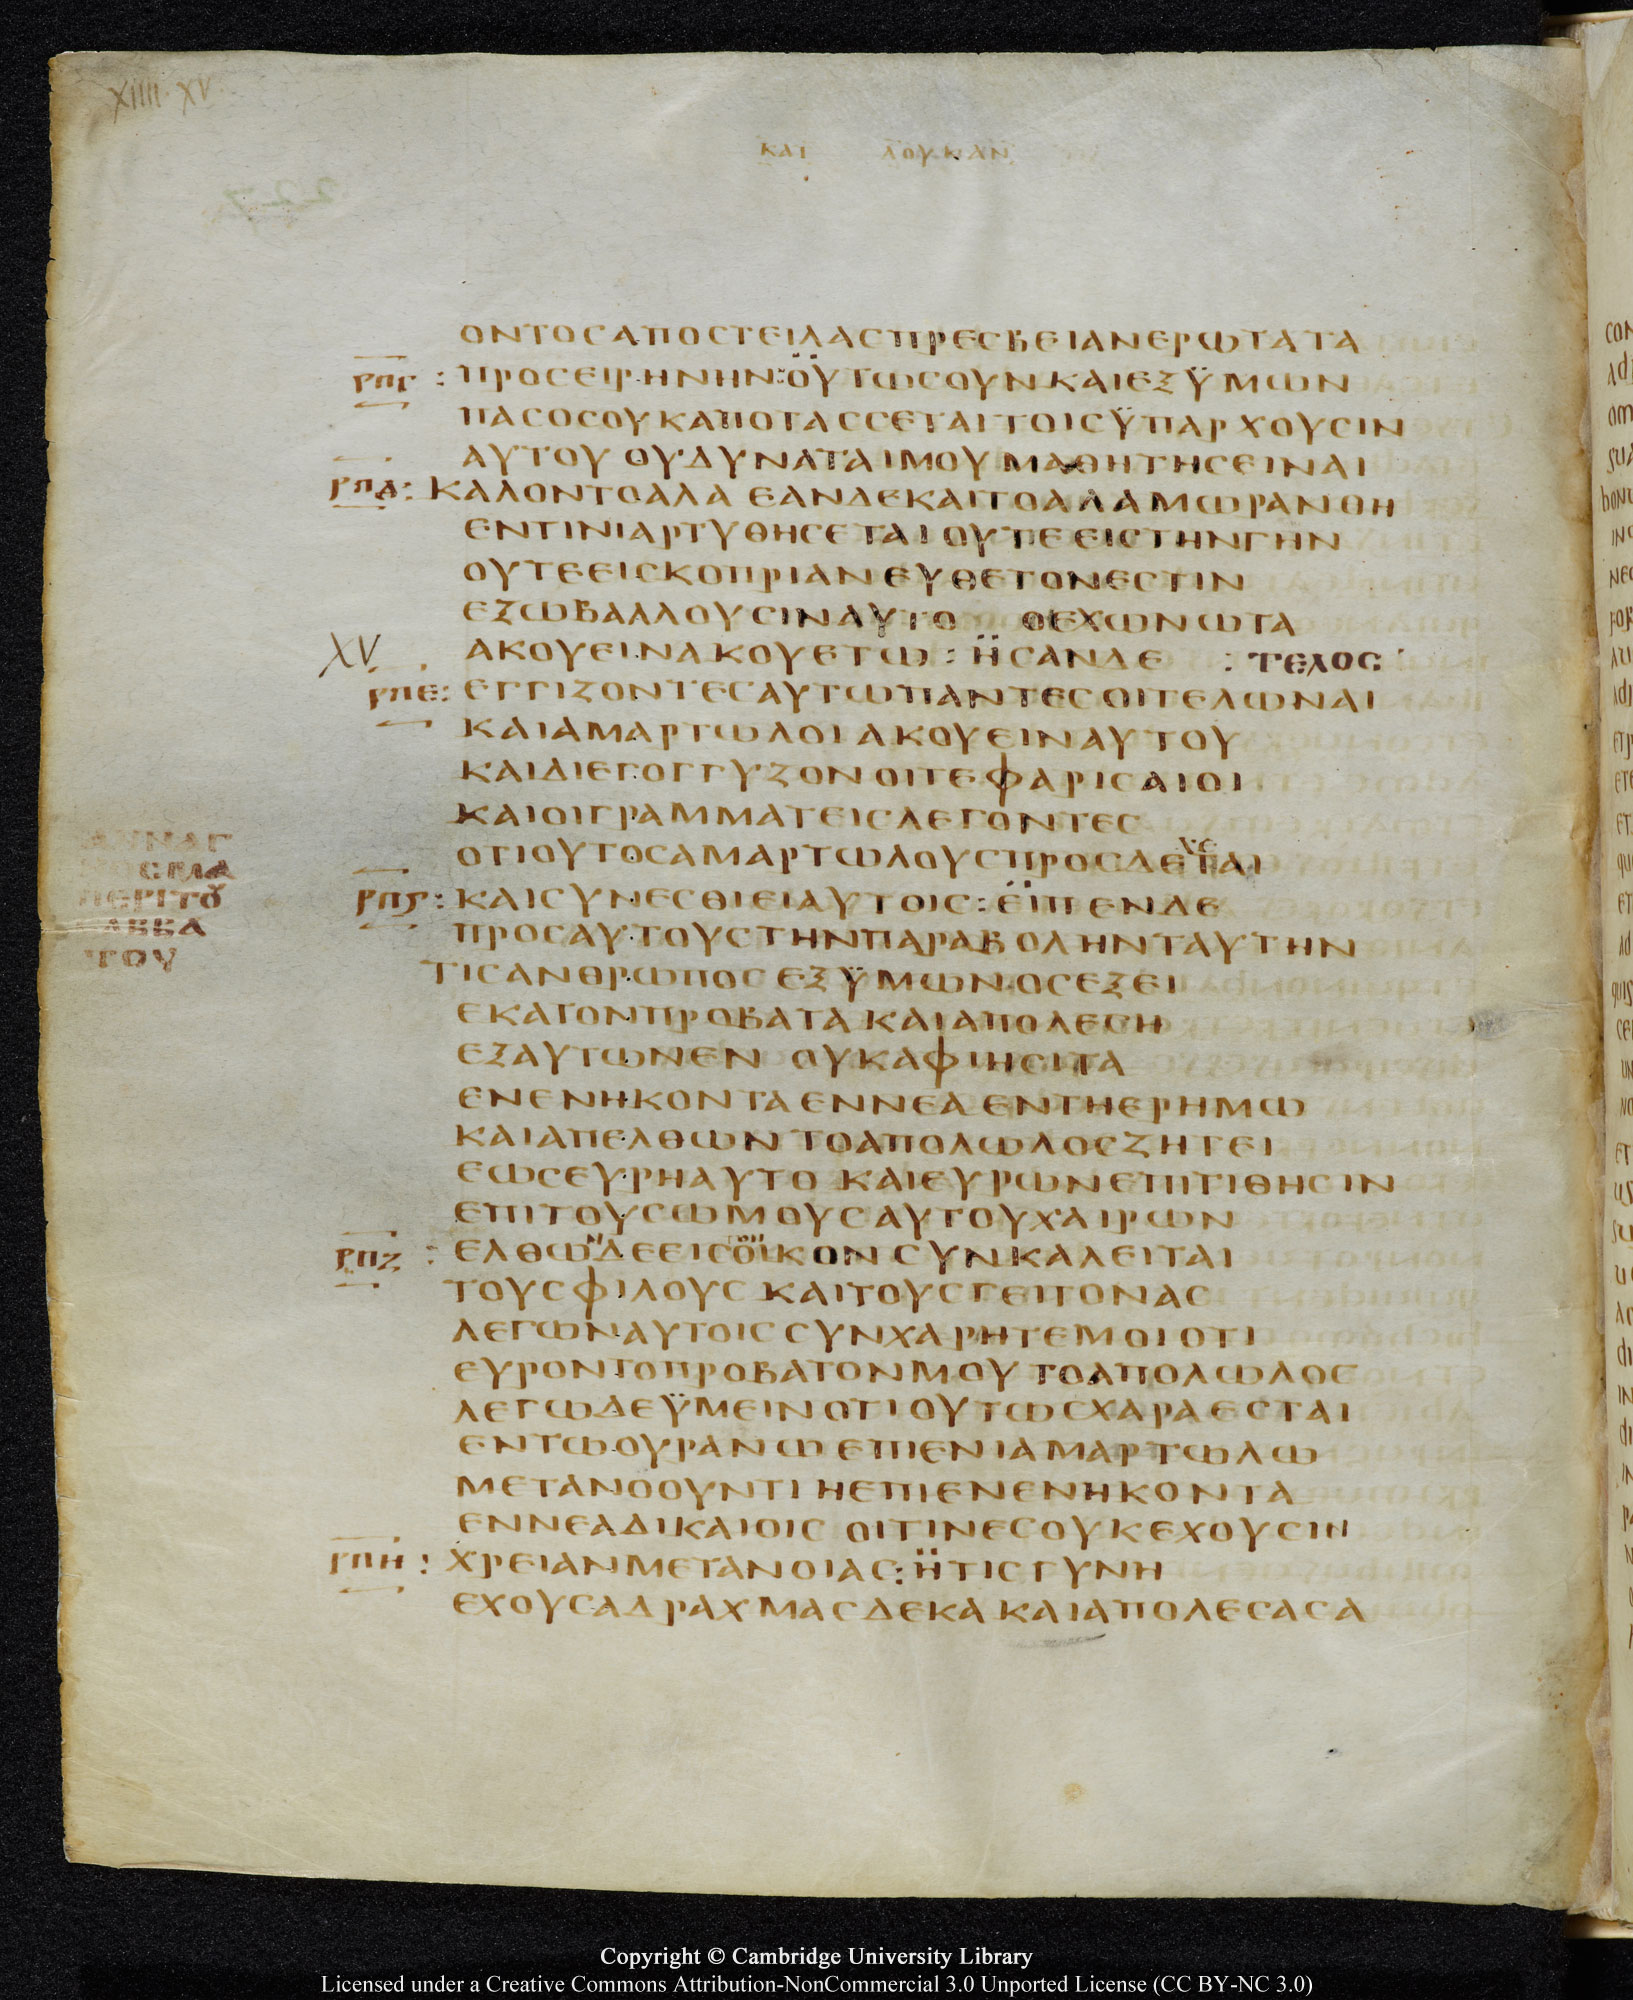 XIIII XV
ΚΑΙ ΛΟΥΚΑΝ
227
ΟΝΤΟCΑΠΟCΤΕΙΛΑCΠΡΕCΒΕΙΑΝΕΡωΤΑΤΑ
ΡΠΓ : ΠΡΟCΕΙΡΗΝΗΝ:ΟΫΤωCΟΥΝΚΑΙΕΞΫΜωΝ
ΠΑCΟCΟΥΚΑΠΟΤΑCCΕΤΑΙΤΟΙCΫΠΑΡΧΟΥCΙΝ
ΑΥΤΟΥ ΟΥΔΥΝΑΤΑΙΜΟΥΜΑΘΗΤΗCΕΙΝΑΙ
ΡΠΔ: ΚΑΛΟΝΤΟΑΛΑ ΕΑΝΔΕΚΑΙΤΟΑΛΑΜωΡΑΝΘΗ
ΕΝΤΙΝΙΑΡΤΥΘΗCΕΤΑΙΟΥΤΕΕΙCΤΗΝΓΗΝ
ΟΥΤΕΕΙCΚΟΠΡΙΑΝΕΥΘΕΤΟΝΕCΤΙΝ
ΕΞωΒΑΛΛΟΥCΙΝΑΥΤΟ ΟΕΧωΝωΤΑ
XV ΑΚΟΥΕΙΝΑΚΟΥΕΤω : ΗCΑΝΔΕ : ΤΕΛΟC
ΡΠΕ: ΕΓΓΙΖΟΝΤΕCΑΥΤωΠΑΝΤΕCΟΙΤΕΛωΝΑΙ
ΚΑΙΑΜΑΡΤωΛΟΙΑΚΟΥΕΙΝΑΥΤΟΥ
ΚΑΙΔΙΕΓΟΓΓΥΖΟΝΟΙΤΕΦΑΡΙCΑΙΟΙ
ΚΑΙΟΙΓΡΑΜΜΑΤΕΙCΛΕΓΟΝΤΕC
ΟΤΙΟΥΤΟCΑΜΑΡΤωΛΟΥCΠΡΟCΔΕΧΕΤΑΙ
ΡΠϚ: ΚΑΙCΥΝΕCΘΙΕΙΑΥΤΟΙC: ΕΙΠΕΝΔΕ
ΠΡΟCΑΥΤΟΥCΤΗΝΠΑΡΑΒΟΛΗΝΤΑΥΤΗΝ
ΠΕΡΙΤΟΥ
ΤΙCΑΝΘΡωΠΟC ΕΞΫΜωΝΟCΕΞΕΙ
ΕΚΑΤΟΝΠΡΟΒΑΤΑ ΚΑΙΑΠΟΛΕCΗ
ΕΞΑΥΤωΝΕΝ ΟΥΚΑΦΙΗCΙΤΑ
ΕΝΕΝΗΚΟΝΤΑΕΝΝΕΑ ΕΝΤΗΕΡΗΜω
ΚΑΙΑΠΕΛΘωΝ ΤΟΑΠΟΛωΛΟCΖΗΤΕΙ
ΕωCΕΥΡΗΑΥΤΟ ΚΑΙΕΥΡωΝΕΠΙΤΙΘΗCΙΝ
ΕΠΙΤΟΥCωΜΟΥCΑΥΤΟΥΧΑΙΡωΝ
ΡΠΖ : ΕΛΘωΝΔΕΕΙCΤΟΝΟΙΚΟΝ CΥΝΚΑΛΕΙΤΑΙ
ΤΟΥCΦΙΛΟΥC ΚΑΙΤΟΥCΓΕΙΤΟΝΑC
ΛΕΓωΝΑΥΤΟΙC CΥΝΧΑΡΗΤΕΜΟΙΟΤΙ
ΕΥΡΟΝΤΟΠΡΟΒΑΤΟΝΜΟΥ ΤΟΑΠΟΛωΛΟC
ΛΕΓωΔΕΫΜΕΙΝΟΤΙΟΥΤωCΧΑΡΑΕCΤΑΙ
ΕΝΤωΟΥΡΑΝω ΕΠΙΕΝΙΑΜΑΡΤωΛω
ΜΕΤΑΝΟΟΥΝΤΙ ΗΕΠΙΕΝΕΝΗΚΟΝΤΑ
ΕΝΝΕΑΔΙΚΑΙΟΙC ΟΙΤΙΝΕCΟΥΚΕΧΟΥCΙΝ
ΡΠΗ : ΧΡΕΙΑΝΜΕΤΑΝΟΙΑC: ΗΤΙCΓΥΝΗ
ΕΧΟΥCΑΔΡΑΧΜΑCΔΕΚΑ ΚΑΙΑΠΟΛΕCΑCΑ
Copyright © Cambridge University Library
Licensed under a Creative Commons Attribution-NonCommercial 3.0 Unported License (CC BY-NC 3.0)